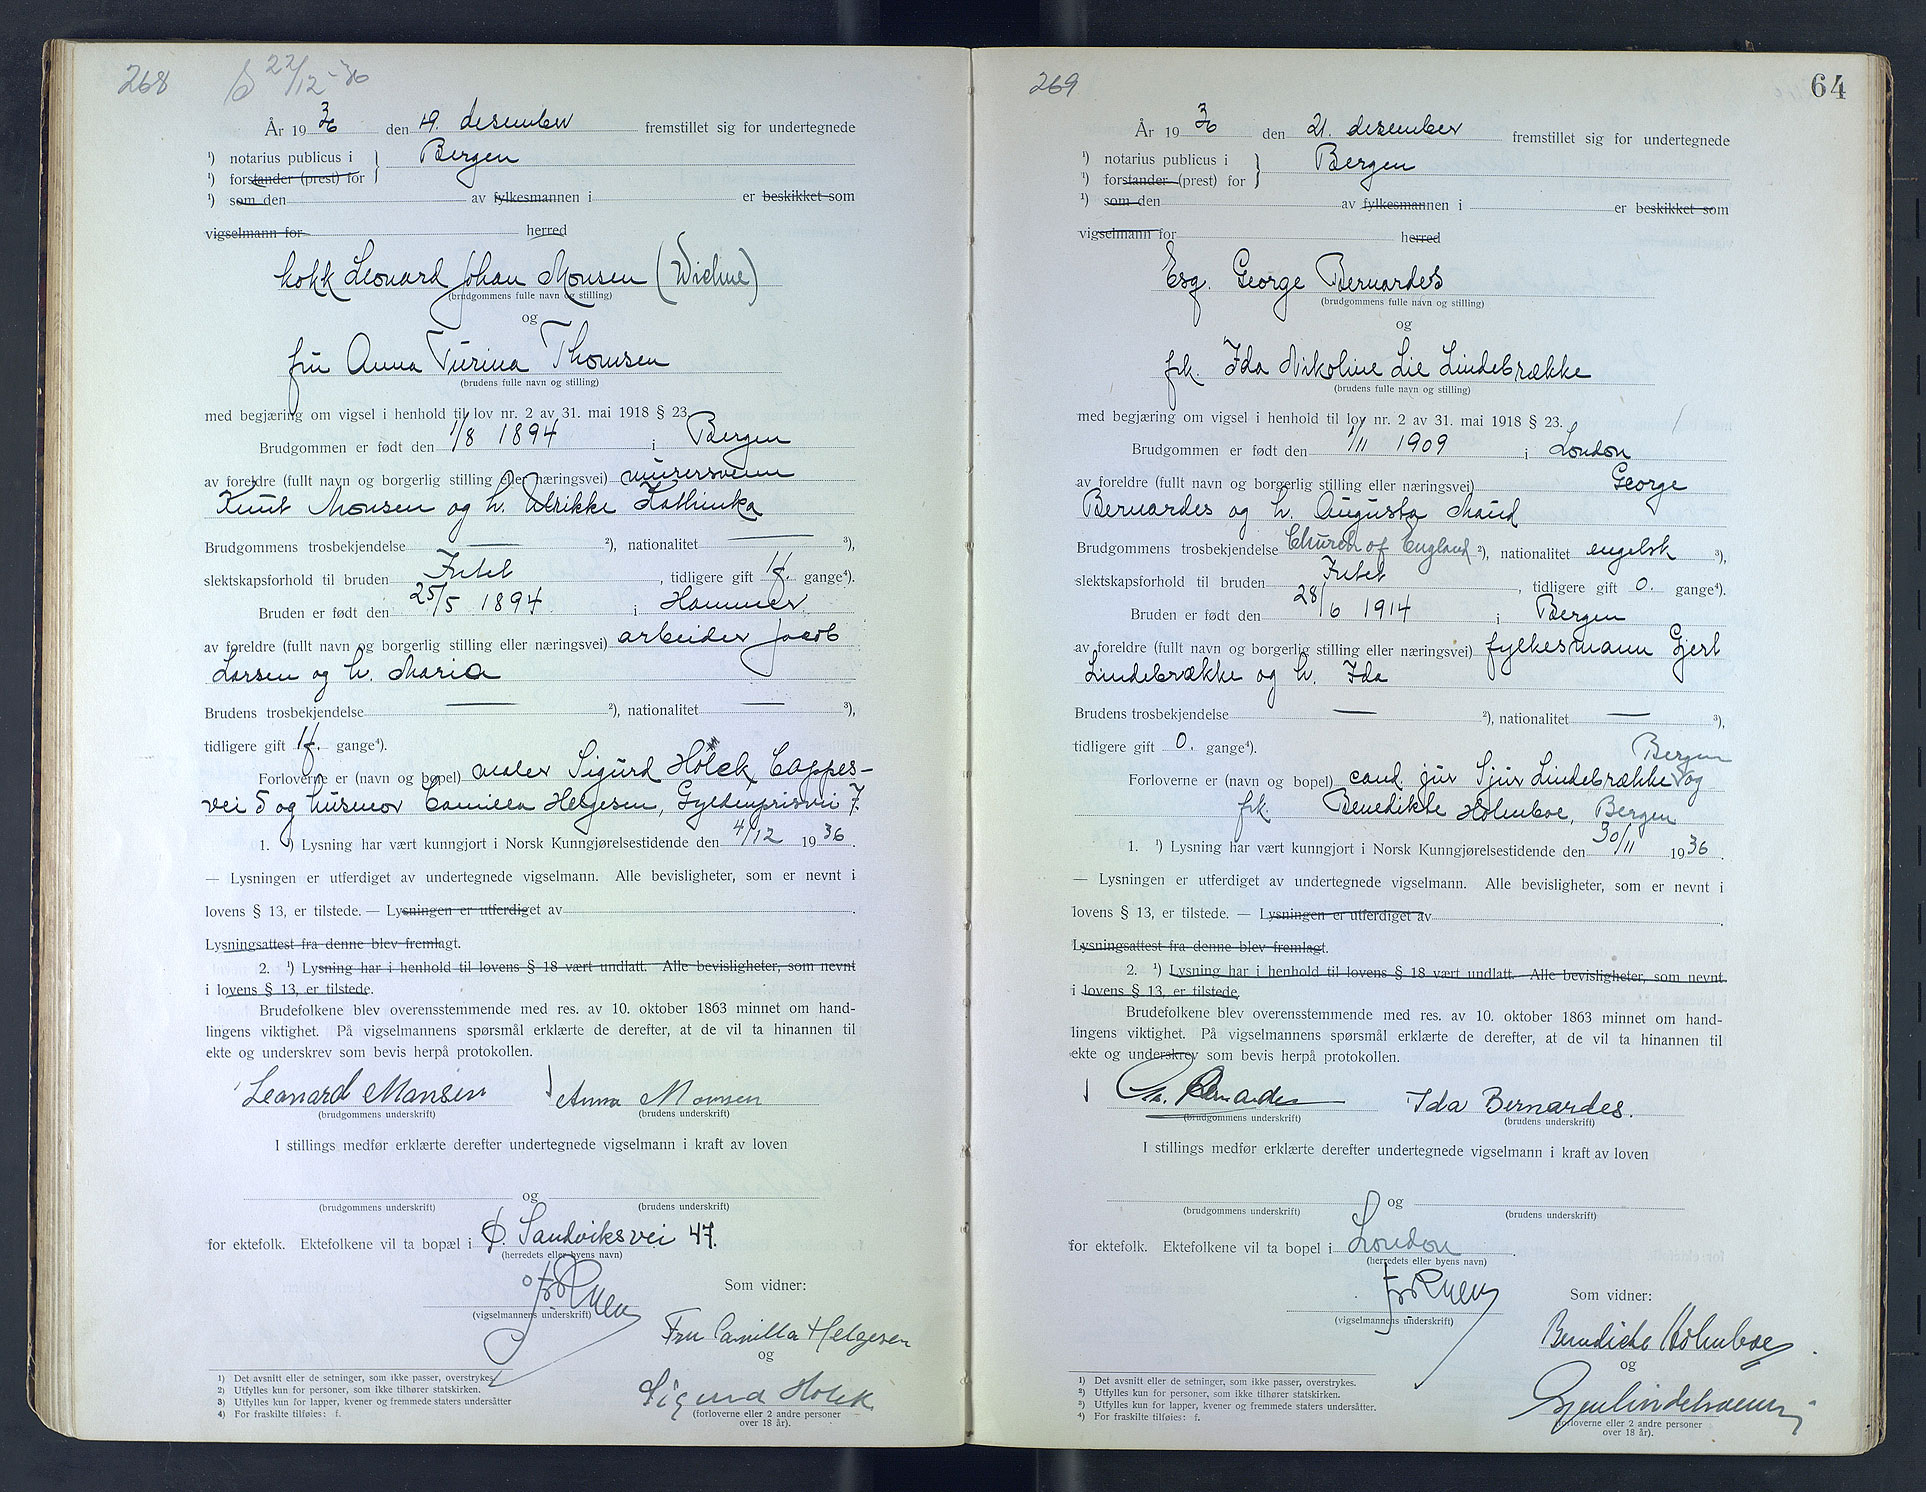 268 22/12-36
År 1936 den 19. desember fremstillet sig for undertegnede
¹) notarius publicus i } Bergen
¹) forstander (prest) for
¹) som den av fylkesmannen i er beskikket som
vigselmann for herred
kokk Leonard Johan Monsen (Wiehne)
(brudgommens fulle navn og stilling)
og
fru Anna Turina Thomsen
(brudens fulle navn og stilling)
med begjæring om vigsel i henhold til lov nr. 2 av 31. mai 1918 § 23.
Brudgommen er født den 1/8 1894 i Bergen
av foreldre (fullt navn og borgerlig stilling eller næringsvei) murersvenn
Knut Monsen og h. Ulrikke Kathinka
Brudgommens trosbekjendelse — ²), nationalitet — ³),
slektskapsforhold til bruden Intet, tidligere gift 1 f. gange⁴).
Bruden er født den 25/5 1894 i Hammer
av foreldre (fullt navn og borgerlig stilling eller næringsvei) arbeider Jacob
Larsen og h. Maria
Brudens trosbekjendelse — ²), nationalitet — ³),
tidligere gift 1 f. gange⁴).
Forloverne er (navn og bopel) maler Sigurd Holck Cappes-
vei 5 og husmor Camilla Helgesen, Gyldenprisvei 7
1. ¹) Lysning har vært kunngjort i Norsk Kunngjørelsestidende den 4/12 1936.
— Lysningen er utferdiget av undertegnede vigselmann. Alle bevisligheter, som er nevnt i
lovens § 13, er tilstede. — Lysningen er utferdiget av
Lysningsattest fra denne blev fremlagt.
2. ¹) Lysning har i henhold til lovens § 18 vært undlatt. Alle bevisligheter, som nevnt
i lovens § 13, er tilstede.
Brudefolkene blev overensstemmende med res. av 10. oktober 1863 minnet om hand-
lingens viktighet. På vigselmannens spørsmål erklærte de derefter, at de vil ta hinannen til
ekte og underskrev som bevis herpå protokollen.
Leonard Monsen Anna Monsen
(brudgommens underskrift) (brudens underskrift)
I stillings medfør erklærte derefter undertegnede vigselmann i kraft av loven
og
(brudgommens underskrift) (brudens underskrift)
for ektefolk. Ektefolkene vil ta bopæl i Ø. Sandviksvei 47.
(herredets eller byens navn)
Som vidner:
(vigselmannens underskrift)
Fru Camilla Helgesen
og
Sigurd Holck
(forloverne eller 2 andre personer
over 18 år).
1) Det avsnitt eller de setninger, som ikke passer, overstrykes.
2) Utfylles kun for personer, som ikke tilhører statskirken.
3) Utfylles kun for lapper, kvener og fremmede staters undersåtter
4) For fraskilte tilføies: f.
269 64
År 1936 den 21. desember fremstillet sig for undertegnede
¹) notarius publicus i } Bergen
¹) forstander (prest) for
¹) som den av fylkesmannen i er beskikket som
vigselmann for herred
Esq. George Bernardes
(brudgommens fulle navn og stilling)
og
frk. Ida Nikoline Lie Lindebrække
(brudens fulle navn og stilling)
med begjæring om vigsel i henhold til lov nr. 2 av 31. mai 1918 § 23.
Brudgommen er født den 1/11 1909 i London
av foreldre (fullt navn og borgerlig stilling eller næringsvei) George
Bernardes og h. Augusta Maud
Brudgommens trosbekjendelse Church of England ²), nationalitet engelsk ³),
slektskapsforhold til bruden Intet, tidligere gift 0. gange⁴).
Bruden er født den 28/6 1914 i Bergen
av foreldre (fullt navn og borgerlig stilling eller næringsvei) fylkesmann Gjert
Lindebrække og h. Ida
Brudens trosbekjendelse — ²), nationalitet — ³),
tidligere gift 0. gange⁴).
Bergen
Forloverne er (navn og bopel) cand. jur Sjur Lindebrække og
frk. Benedikte Holmboe, Bergen
1. ¹) Lysning har vært kunngjort i Norsk Kunngjørelsestidende den 30/11 1936.
— Lysningen er utferdiget av undertegnede vigselmann. Alle bevisligheter, som er nevnt i
lovens § 13, er tilstede. — Lysningen er utferdiget av
Lysningsattest fra denne blev fremlagt.
2. ¹) Lysning har i henhold til lovens § 18 vært undlatt. Alle bevisligheter, som nevnt
i lovens § 13, er tilstede.
Brudefolkene blev overensstemmende med res. av 10. oktober 1863 minnet om hand-
lingens viktighet. På vigselmannens spørsmål erklærte de derefter, at de vil ta hinannen til
ekte og underskrev som bevis herpå protokollen.
Bernardes Ida Bernardes.
(brudgommens underskrift) (brudens underskrift)
I stillings medfør erklærte derefter undertegnede vigselmann i kraft av loven
og
(brudgommens underskrift) (brudens underskrift)
for ektefolk. Ektefolkene vil ta bopel i London.
(herredets eller byens navn)
Som vidner:
(vigselmannens underskrift)
Benedicte Holmboe
og
(forloverne eller 2 andre personer
over 18 år).
1) Det avsnitt eller de setninger, som ikke passer, overstrykes.
2) Utfylles kun for personer, som ikke tilhører statskirken.
3) Utfylles kun for lapper, kvener og fremmede staters undersåtter.
4) For fraskilte tilføies: f.